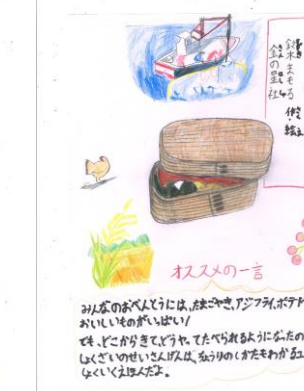 鈴木まもる 作・絵
金の星社
オススメの一言
みんなのおべんとうには、たまごやき、アジフライ、ポテト
おいしいものがいっぱい！
でも、どこからきてどうやってたべられるようになったの
しょくざいのせいさんげんば、りょうりのしかたもわかる
しょくいくえほんだよ。